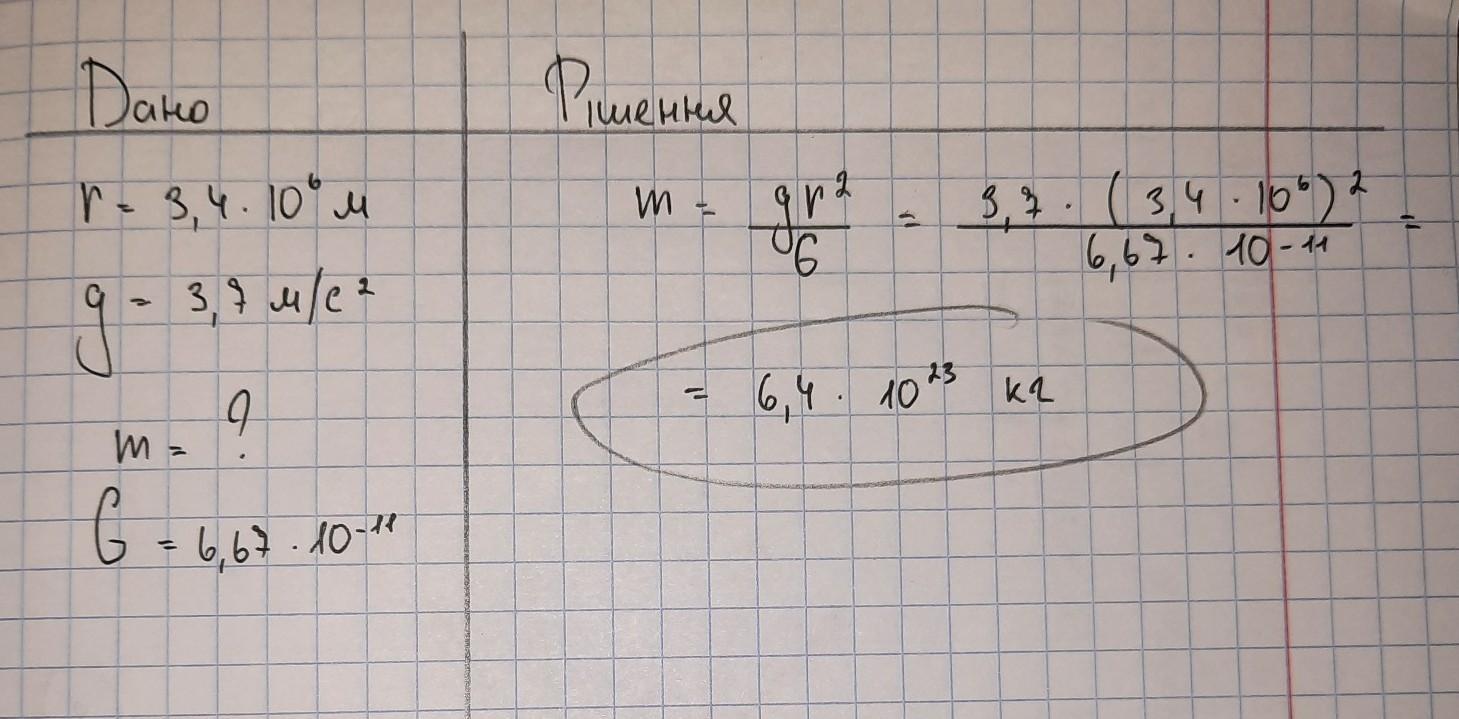 Дано
r = 3,4 · 10⁶ м
g = 3,7 м/с²
m = ?
G = 6,67 · 10⁻¹¹
Рішення
m = gr²/G = 3,7 · (3,4 · 10⁶)² / 6,67 · 10⁻¹¹ =
= 6,4 · 10²³ кг